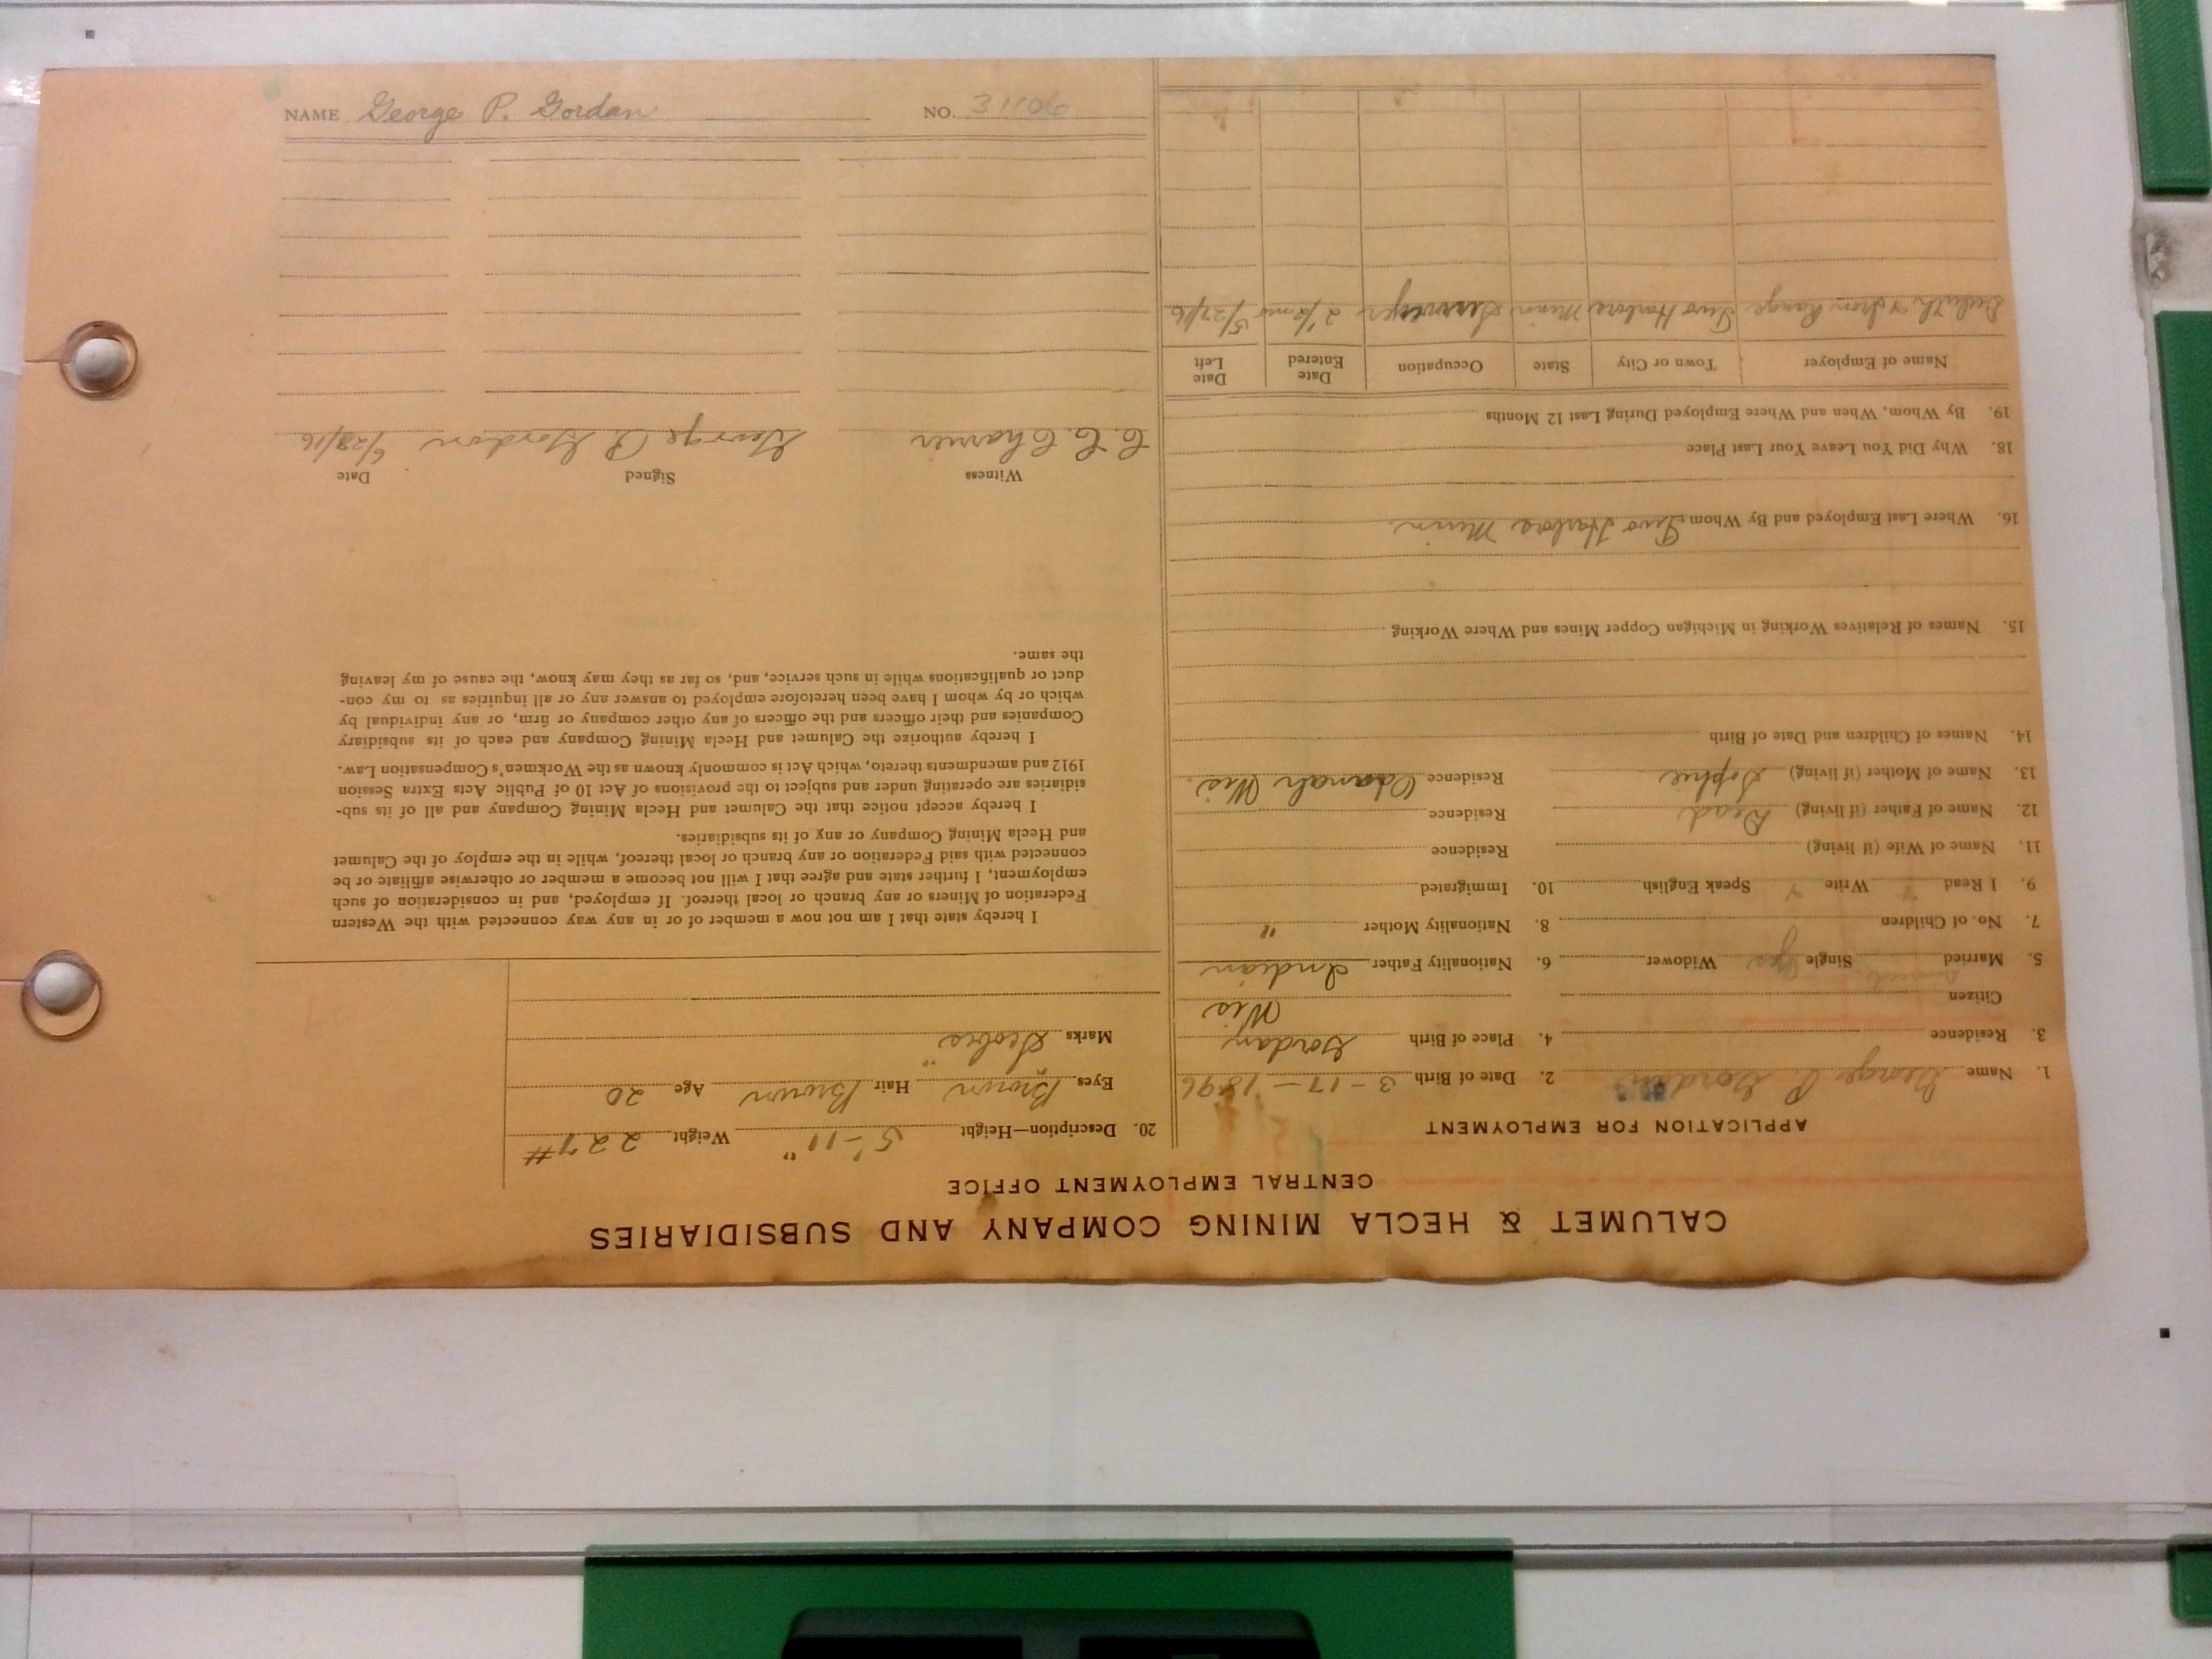 CALUMET & HECLA MINING COMPANY AND SUBSIDIARIES
CENTRAL EMPLOYMENT OFFICE
APPLICATION FOR EMPLOYMENT
1. Name George P. Gordon 2. Date of Birth 3-17-1896
3. Residence 4. Place of Birth Gordan
Wis
Citizen
5. Married Single Yes Widower 6. Nationality Father Indian
7. No. of Children 8. Nationality Mother "
9. I Read Write Y Speak English 10. Immigrated
11. Name of Wife (if living) Residence
12. Name of Father (if living) Dead Residence
13. Name of Mother (if living) Sophie Residence Odanah Wis
14. Names of Children and Date of Birth
15. Names of Relatives Working in Michigan Copper Mines and Where Working
16. Where Last Employed and By Whom Two Harbors Minn
18. Why Did You Leave Your Last Place
19. By Whom, When and Where Employed During Last 12 Months
Name of Employer Town or City State Occupation Date Entered Date Left
Duluth & Iron Range Two Harbors Minn 2 1/2 mos 5/27/16
20. Description—Height 5'-11" Weight 227#
Eyes Brown Hair Brown Age 20
Marks
I hereby state that I am not now a member of or in any way connected with the Western
Federation of Miners or any branch or local thereof. If employed, and in consideration of such
employment, I further state and agree that I will not become a member or otherwise affiliate or be
connected with said Federation or any branch or local thereof, while in the employ of the Calumet
and Hecla Mining Company or any of its subsidiaries.
I hereby accept notice that the Calumet and Hecla Mining Company and all of its sub-
sidiaries are operating under and subject to the provisions of Act 10 of Public Acts Extra Session
1912 and amendments thereto, which Act is commonly known as the Workmen's Compensation Law.
I hereby authorize the Calumet and Hecla Mining Company and each of its subsidiary
Companies and their officers and the officers of any other company or firm, or any individual by
which or by whom I have been heretofore employed to answer any or all inquiries as to my con-
duct or qualifications while in such service, and, so far as they may know, the cause of my leaving
the same.
Witness Signed Date
George P. Gordon 6/28/16
NAME George P. Gordan NO. 31106